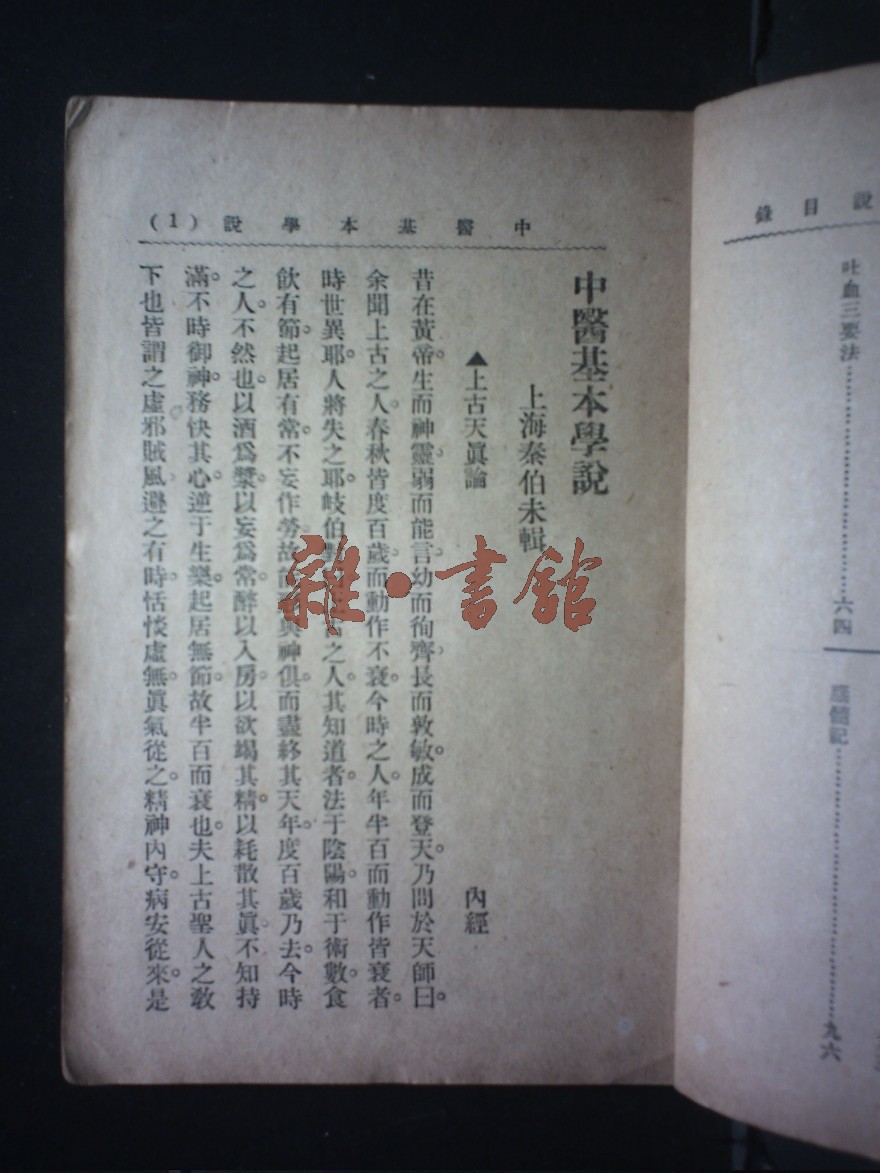 錄目說
吐血三要法……………六四
醫話記……………九六
中醫基本學說（1）
中醫基本學說
上海秦伯未輯
▲上古天眞論　內經
昔在黃帝。生而神靈。弱而能言。幼而徇齊。長而敦敏。成而登天。乃問於天師曰。
余聞上古之人。春秋皆度百歲。而動作不衰。今時之人。年半百而動作皆衰者。
時世異耶。人將失之耶。岐伯 之人。其知道者。法于陰陽。和于術數。食
飲有節。起居有常。不妄作勞。故 與神俱。而盡終其天年。度百歲乃去。今時
之人。不然也。以酒爲漿。以妄爲常。醉以入房。以欲竭其精。以耗散其眞。不知持
滿。不時御神。務快其心。逆于生樂。起居無節。故半百而衰也。夫上古聖人之敎
下也。皆謂之虛邪賊風。避之有時。恬惔虛無。眞氣從之。精神內守。病安從來。是
雜·書舘